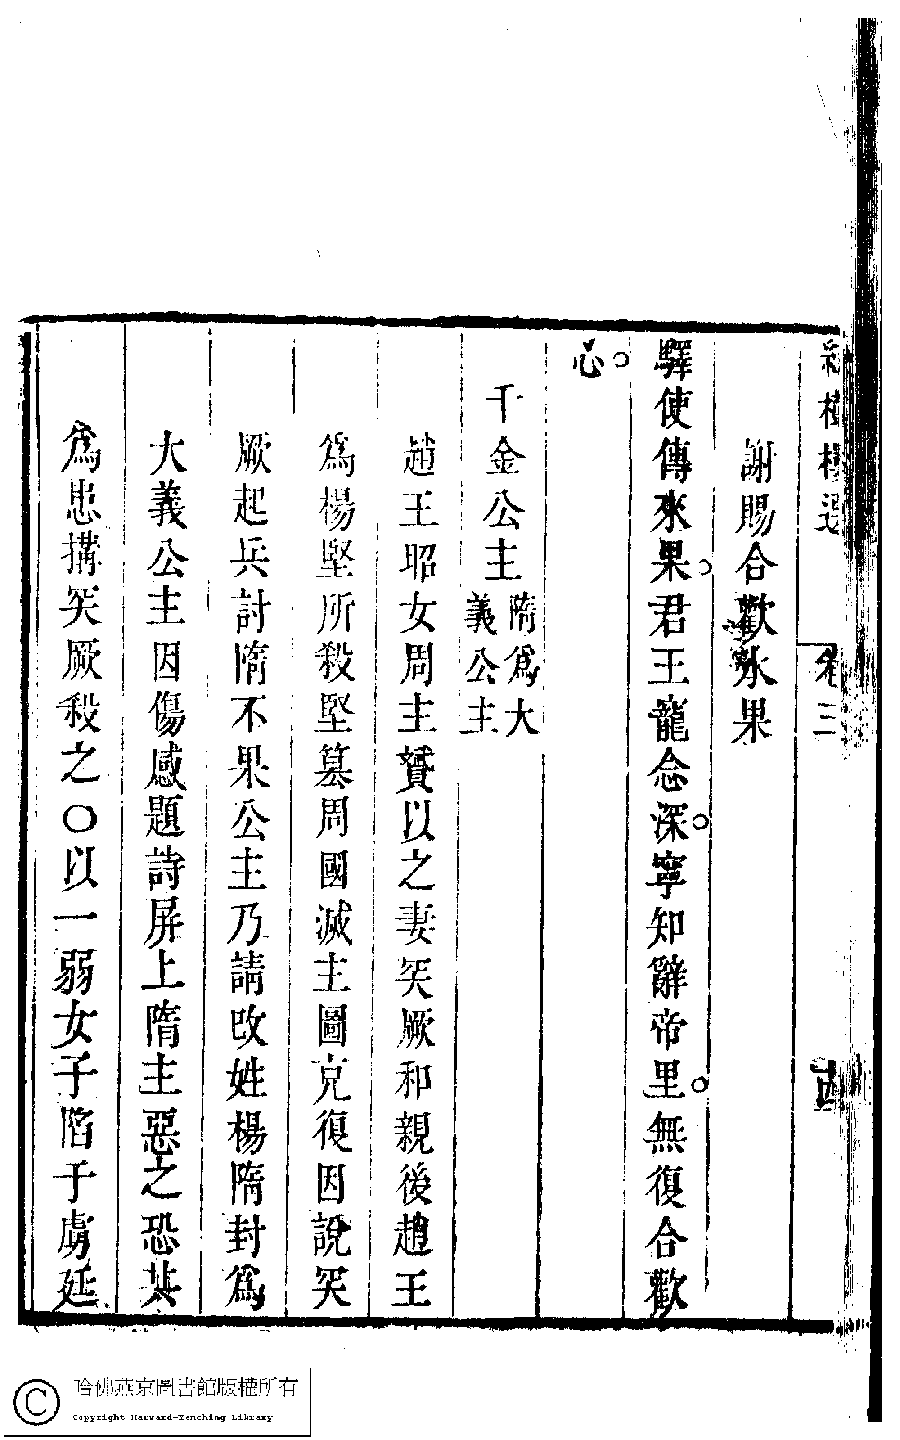 卷三
謝賜合歡水果
驛使傳來果。君王寵念深。寧知辭帝里。無復合歡
心。
千金公主 隋爲大
義公主
趙王昭女周主贇以之妻突厥和親後趙王
爲楊堅所殺堅篡周國滅主圖克復因說突
厥起兵討隋不果公主乃請改姓楊隋封爲
大義公主因傷感題詩屏上隋主惡之恐其
爲患搆突厥殺之〇以一弱女子陷于虜廷
哈佛燕京圖書館版權所有
Copyright Harvard-Yenching Library